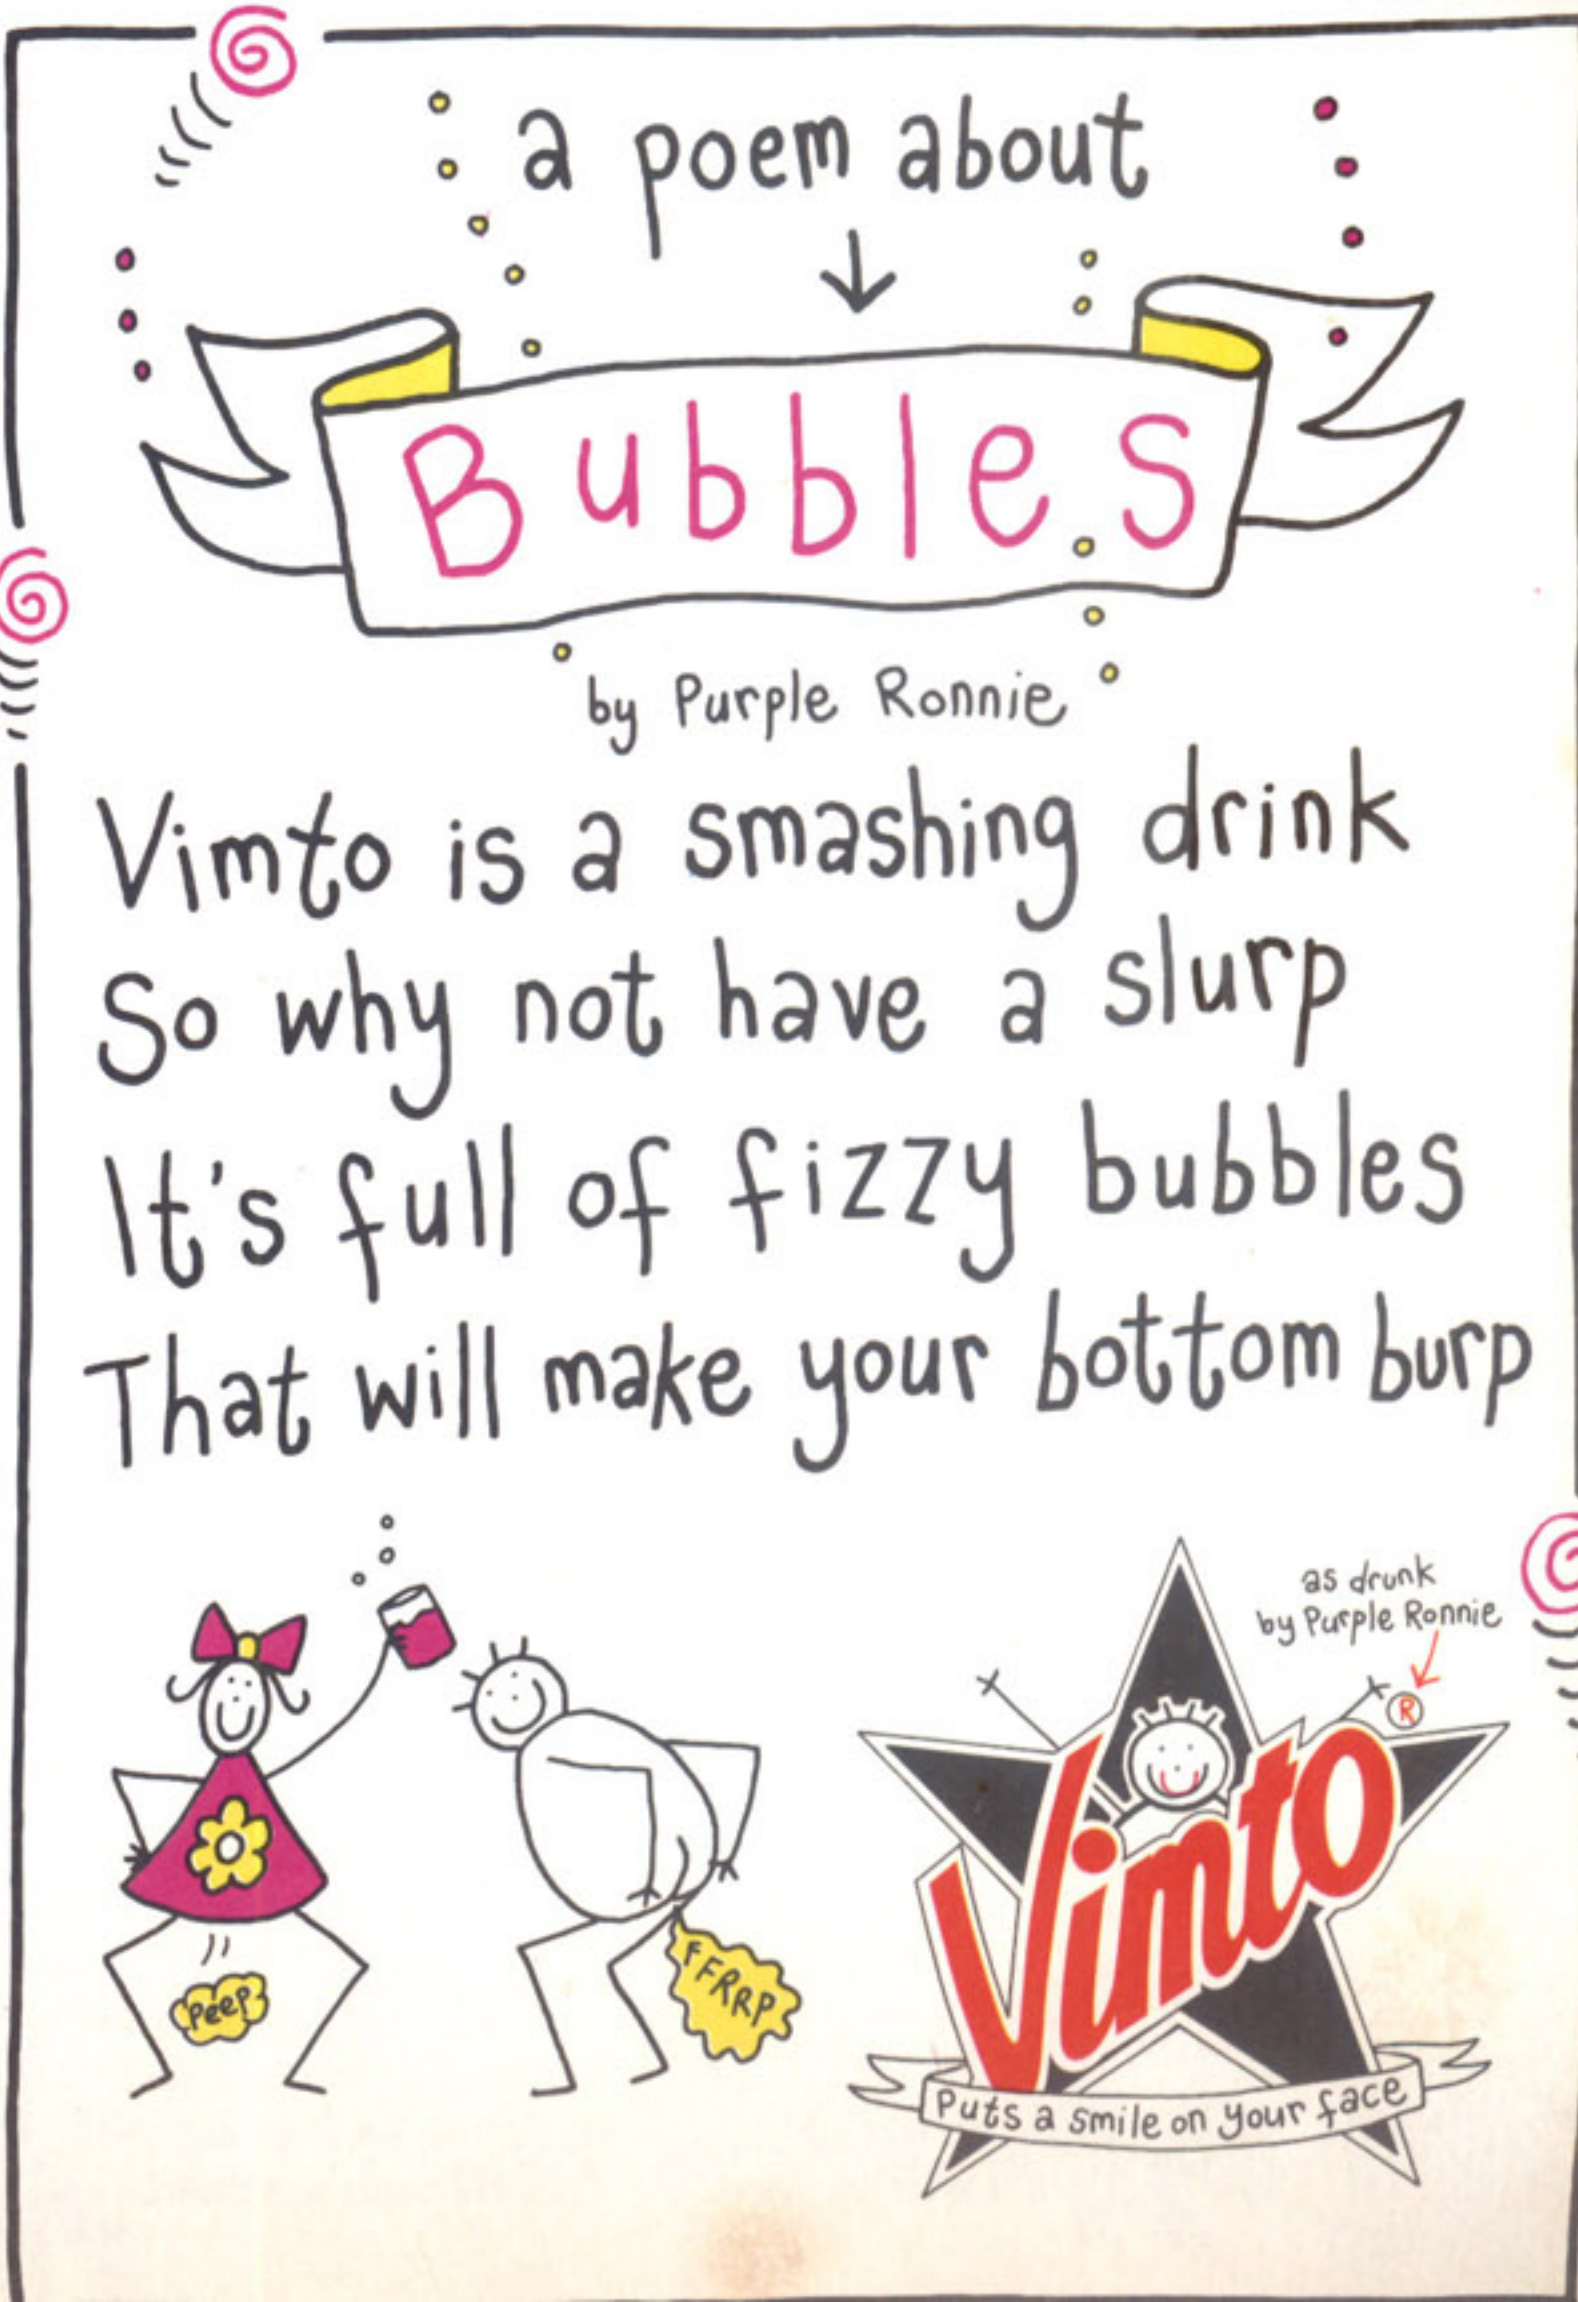 a poem about
Bubbles
by Purple Ronnie
Vimto is a smashing drink
So why not have a slurp
It's full of fizzy bubbles
That will make your bottom burp
as drunk
by Purple Ronnie
®
Vimto
Puts a smile on your face
Peep
FFRRP